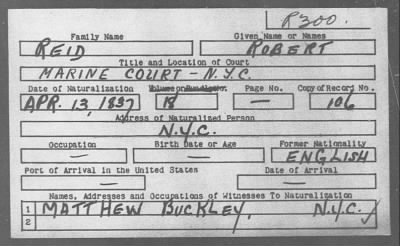 R300.
Family Name Given Name or Names
REID ROBERT
Title and Location of Court
MARINE COURT - N.Y.C.
Date of Naturalization Volume or Bundle No. Page No. Copy of Record No.
APR. 13, 1837 18 — 106
Address of Naturalized Person
N.Y.C.
Occupation Birth Date or Age Former Nationality
— — ENGLISH
Port of Arrival in the United States Date of Arrival
— —
Names, Addresses and Occupations of Witnesses To Naturalization
1 MATTHEW BUCKLEY, N.Y.C. ✓
2